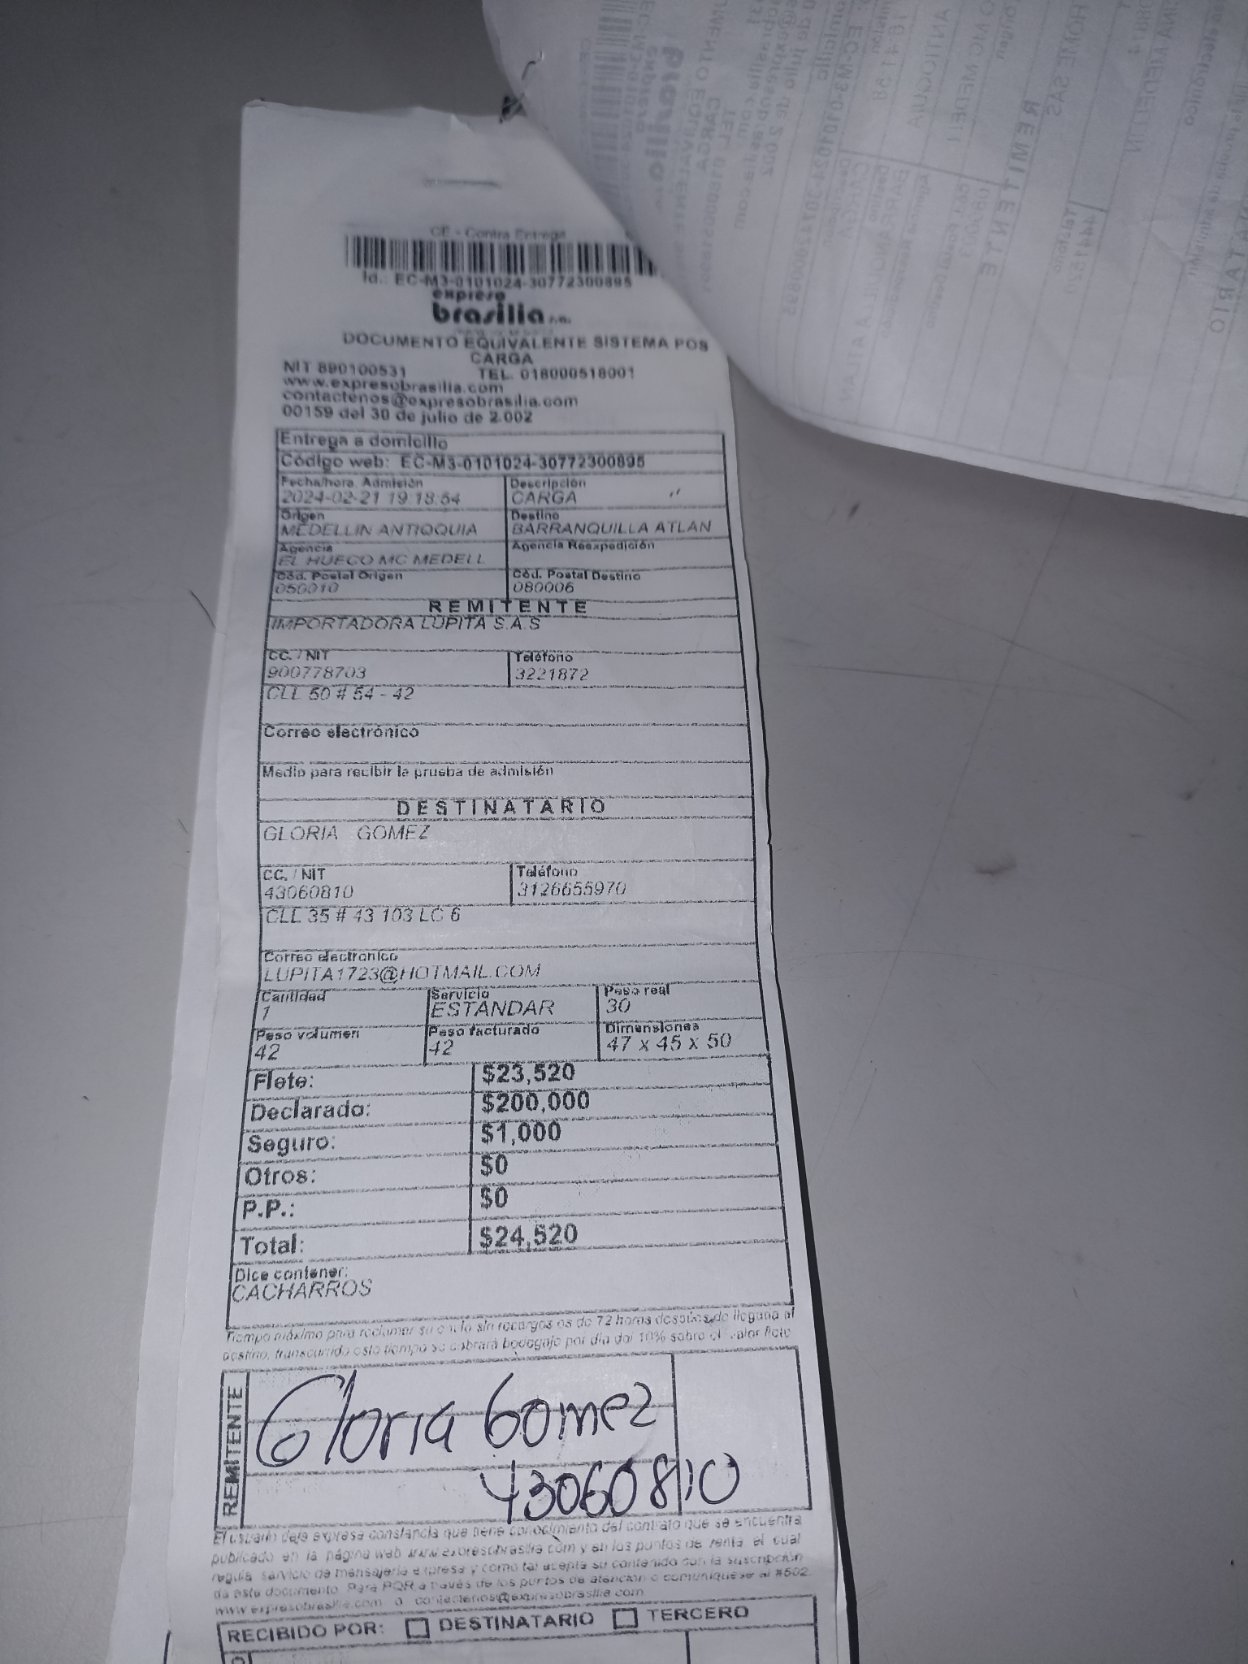 CE - Contra Entrega
Id.: EC-M3-0101024-30772300895
expreso
brasilia S.A.
DOCUMENTO EQUIVALENTE SISTEMA POS
CARGA
NIT 890100531 TEL. 018000518001
www.expresobrasilia.com
contactenos@expresobrasilia.com
00159 del 30 de julio de 2.002
Entrega a domicilio
Código web: EC-M3-0101024-30772300895
Fecha/hora Admisión Descripción
2024-02-21 19:18:54 CARGA
Origen Destino
MEDELLIN ANTIOQUIA BARRANQUILLA ATLAN
Agencia Agencia Reexpedición
EL HUECO MC MEDELL
Cód. Postal Origen Cód. Postal Destino
050010 080006
REMITENTE
IMPORTADORA LUPITA S.A.S
CC. / NIT Teléfono
900778703 3221872
CLL 50 # 54 - 42
Correo electrónico
Medio para recibir la prueba de admisión
DESTINATARIO
GLORIA GOMEZ
CC. / NIT Teléfono
43060810 3126655970
CLL 35 # 43 103 LC 6
Correo electrónico
LUPITA1723@HOTMAIL.COM
Cantidad Servicio Peso real
1 ESTANDAR 30
Peso volumen Peso facturado Dimensiones
42 42 47 x 45 x 50
Flete: $23,520
Declarado: $200,000
Seguro: $1,000
Otros: $0
P.P.: $0
Total: $24,520
Dice contener:
CACHARROS
Tiempo máximo para reclamar su envío sin recargos es de 72 horas después de llegada al
destino, transcurrido este tiempo se cobrará bodegaje por día del 10% sobre el valor flete
REMITENTE
Gloria Gomez
43060810
El usuario deja expresa constancia que tiene conocimiento del contrato que se encuentra
publicado en la página web www.expresobrasilia.com y en los puntos de venta, el cual
regula servicio de mensajería expresa y como tal acepta su contenido con la suscripción
de este documento. Para PQR a través de los puntos de atención o comuníquese al #502.
www.expresobrasilia.com o contactenos@expresobrasilia.com
RECIBIDO POR: DESTINATARIO TERCERO